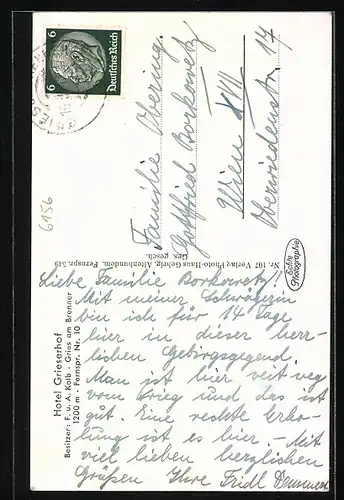 6
6
Deutsches Reich
Familie Obering.
Gottfried Borkowetz
Wien XVII
Oberwiedenstr. 17
6156
Nr. 107 Verlag Photo-Haus Gehrig, Altenhundem, Fernspr. 549
Ges. gesch.
Echte
Photographie
Hotel Grieserhof
Besitzer: F. u. A. Kolb - Gries am Brenner
1200 m - Fernspr. Nr. 10
Liebe Familie Borkowetz!
Mit meiner Schwägerin
bin ich für 14 Tage
hier in dieser herr-
lichen Gebirgsgegend.
Man ist hier weit weg
vom Krieg und das ist
gut. Eine rechte Erho-
lung ist es hier. - Mit
viel lieben herzlichen
Grüßen Ihre Fridl